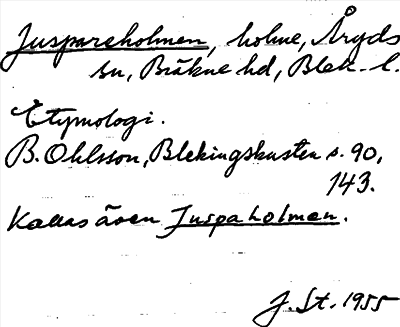 Juspareholmen, holme, Åryds
sn, Bräkne hd, Blek. l.
Etymologi.
B. Ohlsson, Blekingskusten s. 90,
143.
Kallas även Juspaholmen.
J. St. 1955